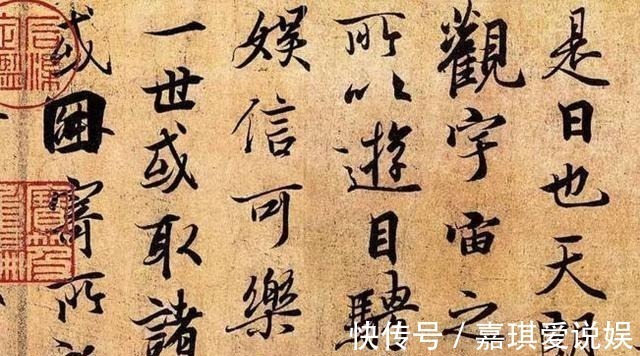 是日也天
觀宇宙之
所以遊目騁
娛信可樂
一世或取諸
或因寄所
快传号 / 嘉琪爱说娱